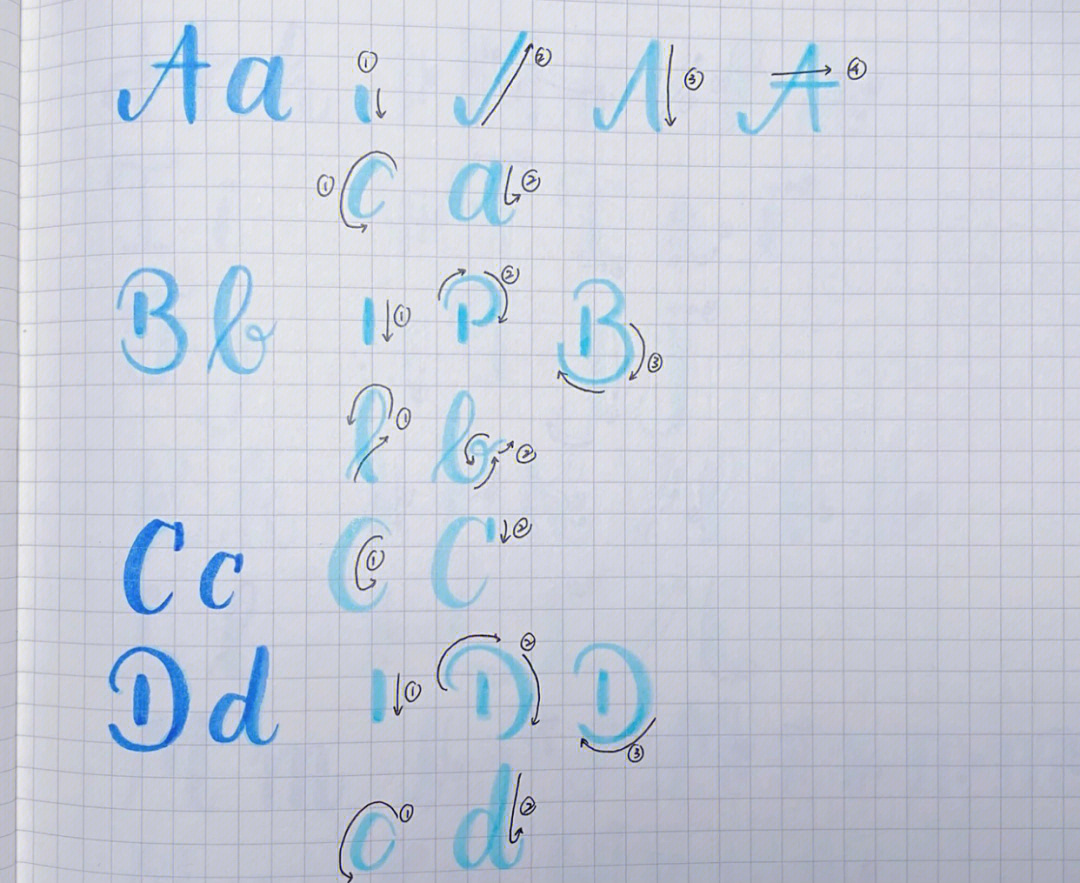 Aa ① ② Λ ③ A ④
① c a ②
Bb ① P ② B ③
l ① b ②
Cc C ① C ②
Dd ① D ② D ③
c ① d ②